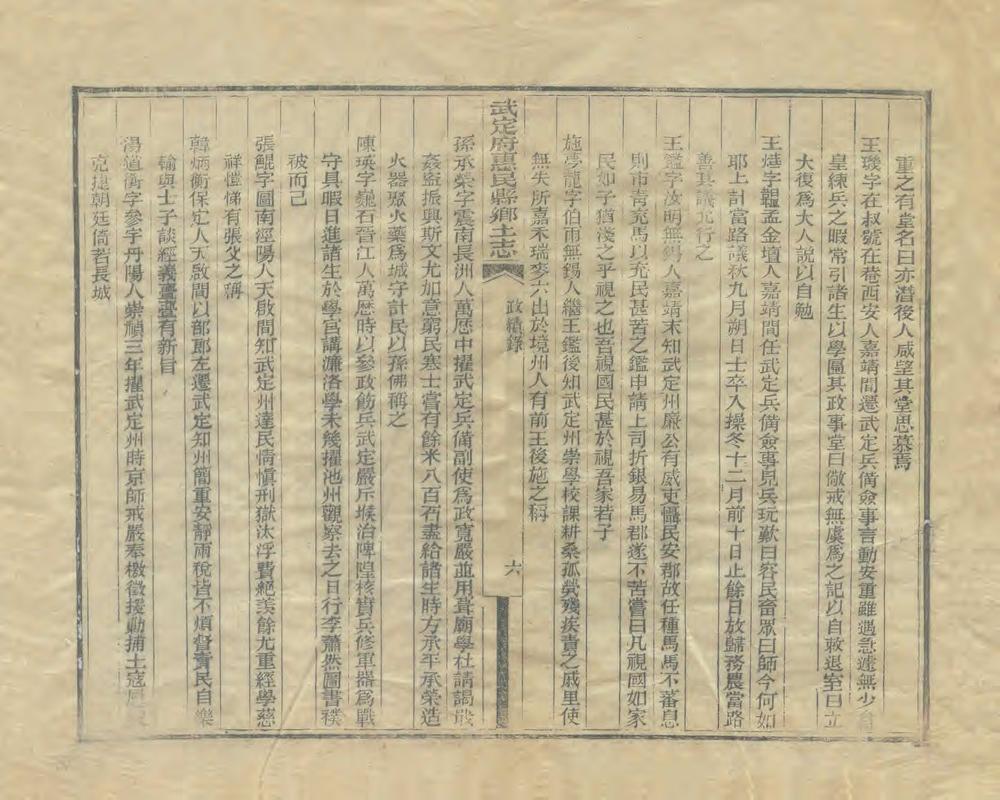 重之有堂名曰亦潛後人咸望其堂思慕焉
王璣字在叔號在菴西安人嘉靖間遷武定兵備僉事言動安重雖遇急遽無少
皇練兵之暇常引諸生以學圃其政事堂曰儆戒無虞為之記以自敕退室曰立
大復為大人說以自勉
王燁字韞孟金壇人嘉靖間任武定兵備僉事見兵玩歎曰容民畜眾曰師今何如
耶上計當路議秋九月朔日士卒入操冬十二月前十日止餘日放歸務農當路
善其議允行之
王鑑字汝明無錫人嘉靖末知武定州廉公有威吏懾民安郡故任種馬馬不蕃息
則市菁充馬以充民甚苦之鑑申請上司折銀易馬郡遂不苦嘗曰凡視國如家
民如子猶淺之乎視之也吾視國民甚於視吾家若子
施夢龍字伯雨無錫人繼王鑑後知武定州崇學校課耕桑孤煢殘疾責之戚里使
無失所嘉禾瑞麥六出於境州人有前王後施之稱
武定府惠民縣鄉土志 政績錄 六
孫承榮字震南長洲人萬歷中擢武定兵備副使為政寬嚴並用葺廟學杜請謁嚴
姦盜振興斯文尤加意窮民寒士嘗有餘米八百石盡給諸生時方承平承榮造
火器聚火藥為城守計民以孫佛稱之
陳瑛字魏石晉江人萬歷時以參政飭兵武定嚴斥堠治陴隍核實兵修軍器為戰
守具暇日進諸生於學宮講濂洛學未幾擢池州觀察去之日行李蕭然圖書襆
被而已
張鯤字圖南涇陽人天啟間知武定州達民情慎刑獄汰浮費絕羨餘尤重經學慈
祥愷悌有張父之稱
韓炳衡保定人天啟間以部郎左遷武定知州簡重安靜雨稅皆不煩督責民自樂
輸與士子談經義亹亹有新旨
湯道衡字參宇丹陽人崇禎三年擢武定州時京師戒嚴奉檄徵援勦捕土寇
克捷朝廷倚若長城